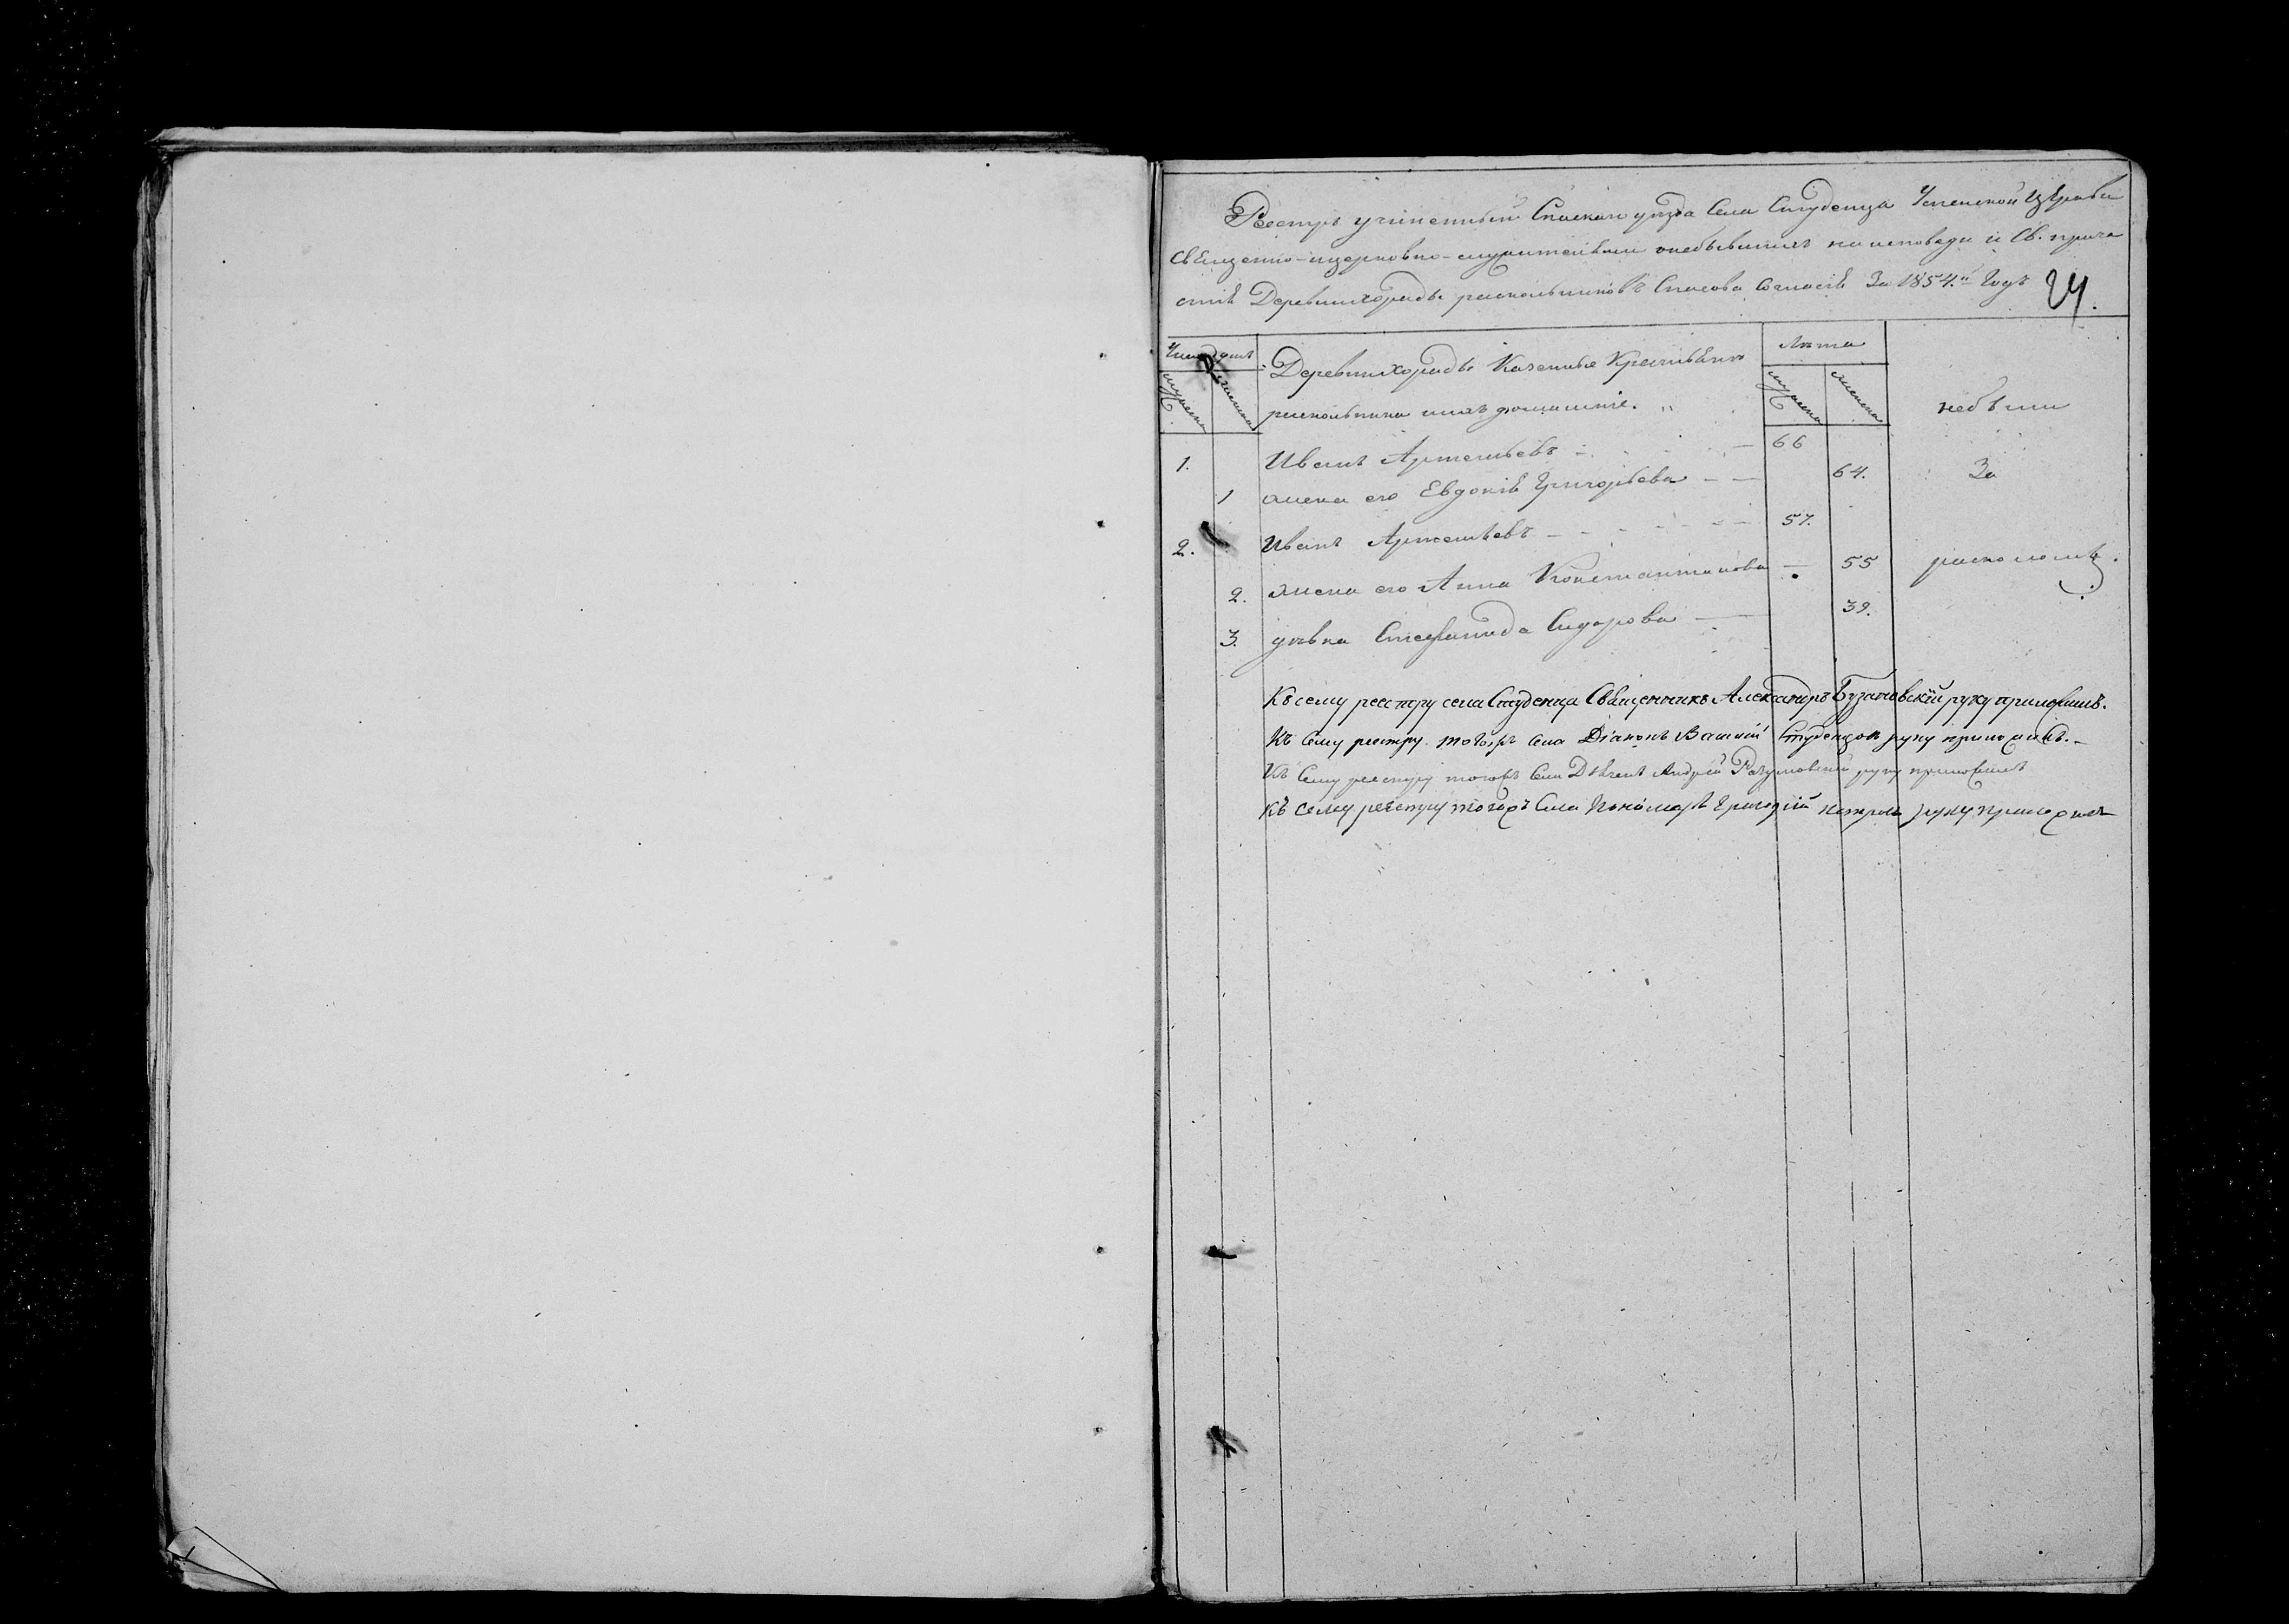 Реестръ учиненный Спаскаго уезда Села Студенца Успенской церкви
священно-ицерковно-служителями онебывшихъ на исповеди и Св. прича
стiя Деревнихорады раскольниковъ Спасова согласiя За 1854.й Годъ
24.
Число душъ
мужеска
женска
Деревнихорады Казенные Крестьяне
раскольники ихъ домашнiе.
Лѣта
мужеска
женска
небыли
1. Иванъ Артемьевъ 66
1 жена его Евдокiя Григорьева 64. За
2. Иванъ Артемьевъ 57.
2. жена его Анна Константинова 55 расколомъ.
3. дѣвка Степанида Сидорова 39.
Къ сему реестру села Студенца Священникъ Александръ руку приложилъ.
Къ сему реестру тогожъ села Дiаконъ Василiй Студенцов руку приложилъ.
Къ сему реестру тогожъ села Дьячекъ Андрей Разумовскiй руку приложилъ
Къ сему реестру тогожъ села Пономарь Григорiй руку приложилъ